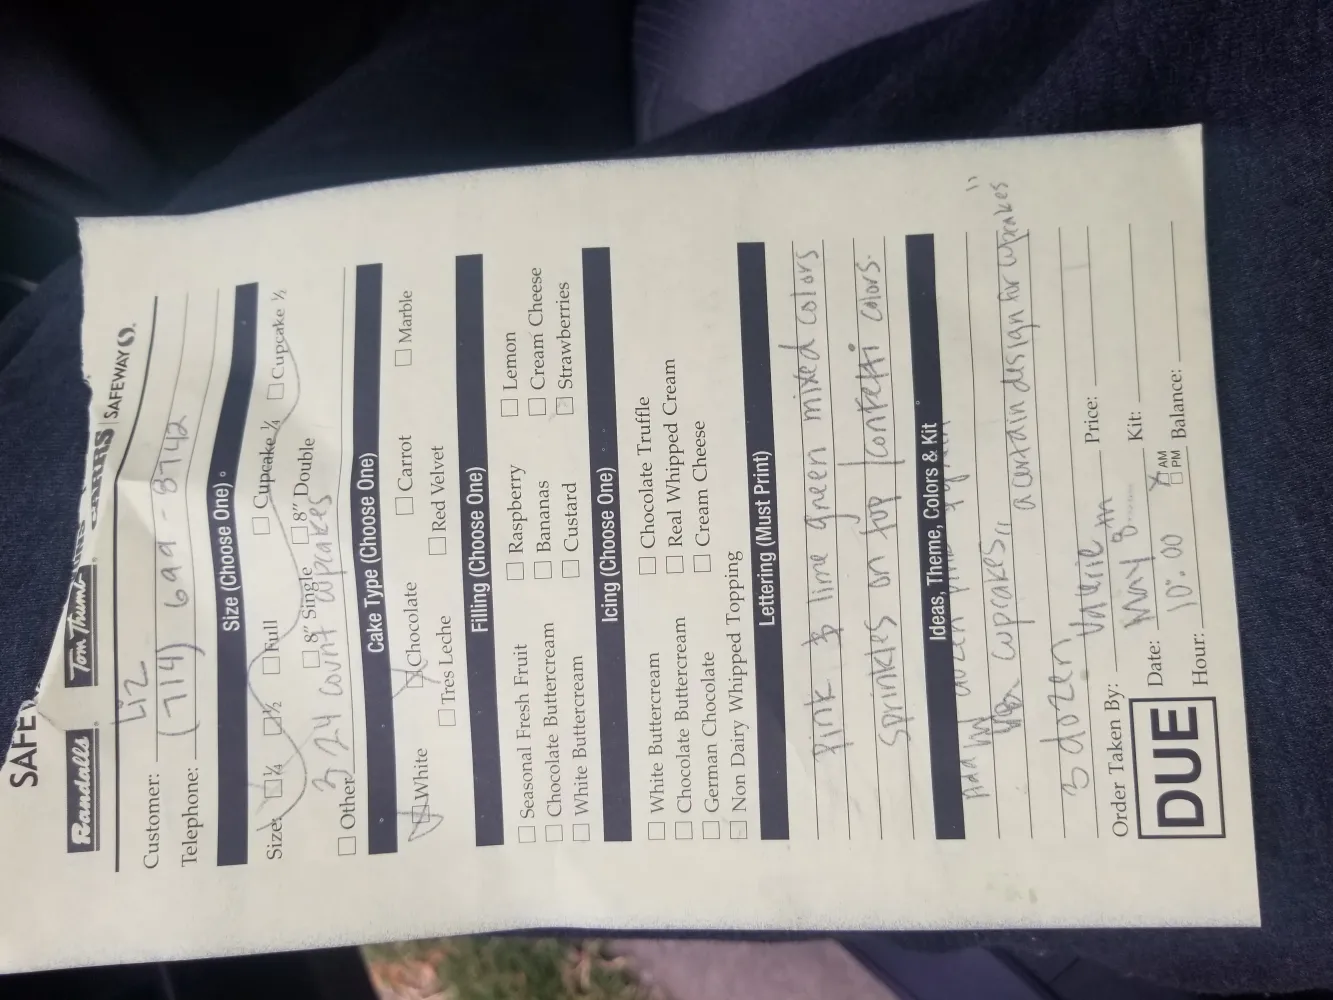 SAFE
Randalls Tom Thumb SAFEWAY
Customer: Liz
Telephone: (714) 699-8742
Size (Choose One)
Size: ☐ ¼ ☐ ½ ☐ Full ☐ Cupcake ¼ ☐ Cupcake ½
☐ 8" Single ☐ 8" Double
☐ Other 3 24 count cupcakes
Cake Type (Choose One)
☐ White ☐ Chocolate ☐ Carrot ☐ Marble
☐ Tres Leche ☐ Red Velvet
Filling (Choose One)
☐ Seasonal Fresh Fruit ☐ Raspberry ☐ Lemon
☐ Chocolate Buttercream ☐ Bananas ☐ Cream Cheese
☐ White Buttercream ☐ Custard ☐ Strawberries
Icing (Choose One)
☐ White Buttercream ☐ Chocolate Truffle
☐ Chocolate Buttercream ☐ Real Whipped Cream
☐ German Chocolate ☐ Cream Cheese
☐ Non Dairy Whipped Topping
Lettering (Must Print)
Pink & lime green mixed colors
Sprinkles on top / confetti colors.
Ideas, Theme, Colors & Kit
Add dozen "
cupcakes, a certain design for cupcakes
3 dozen
Order Taken By: Valerie m Price:
DUE
Date: May 8 Kit:
Hour: 10:00 AM PM Balance: